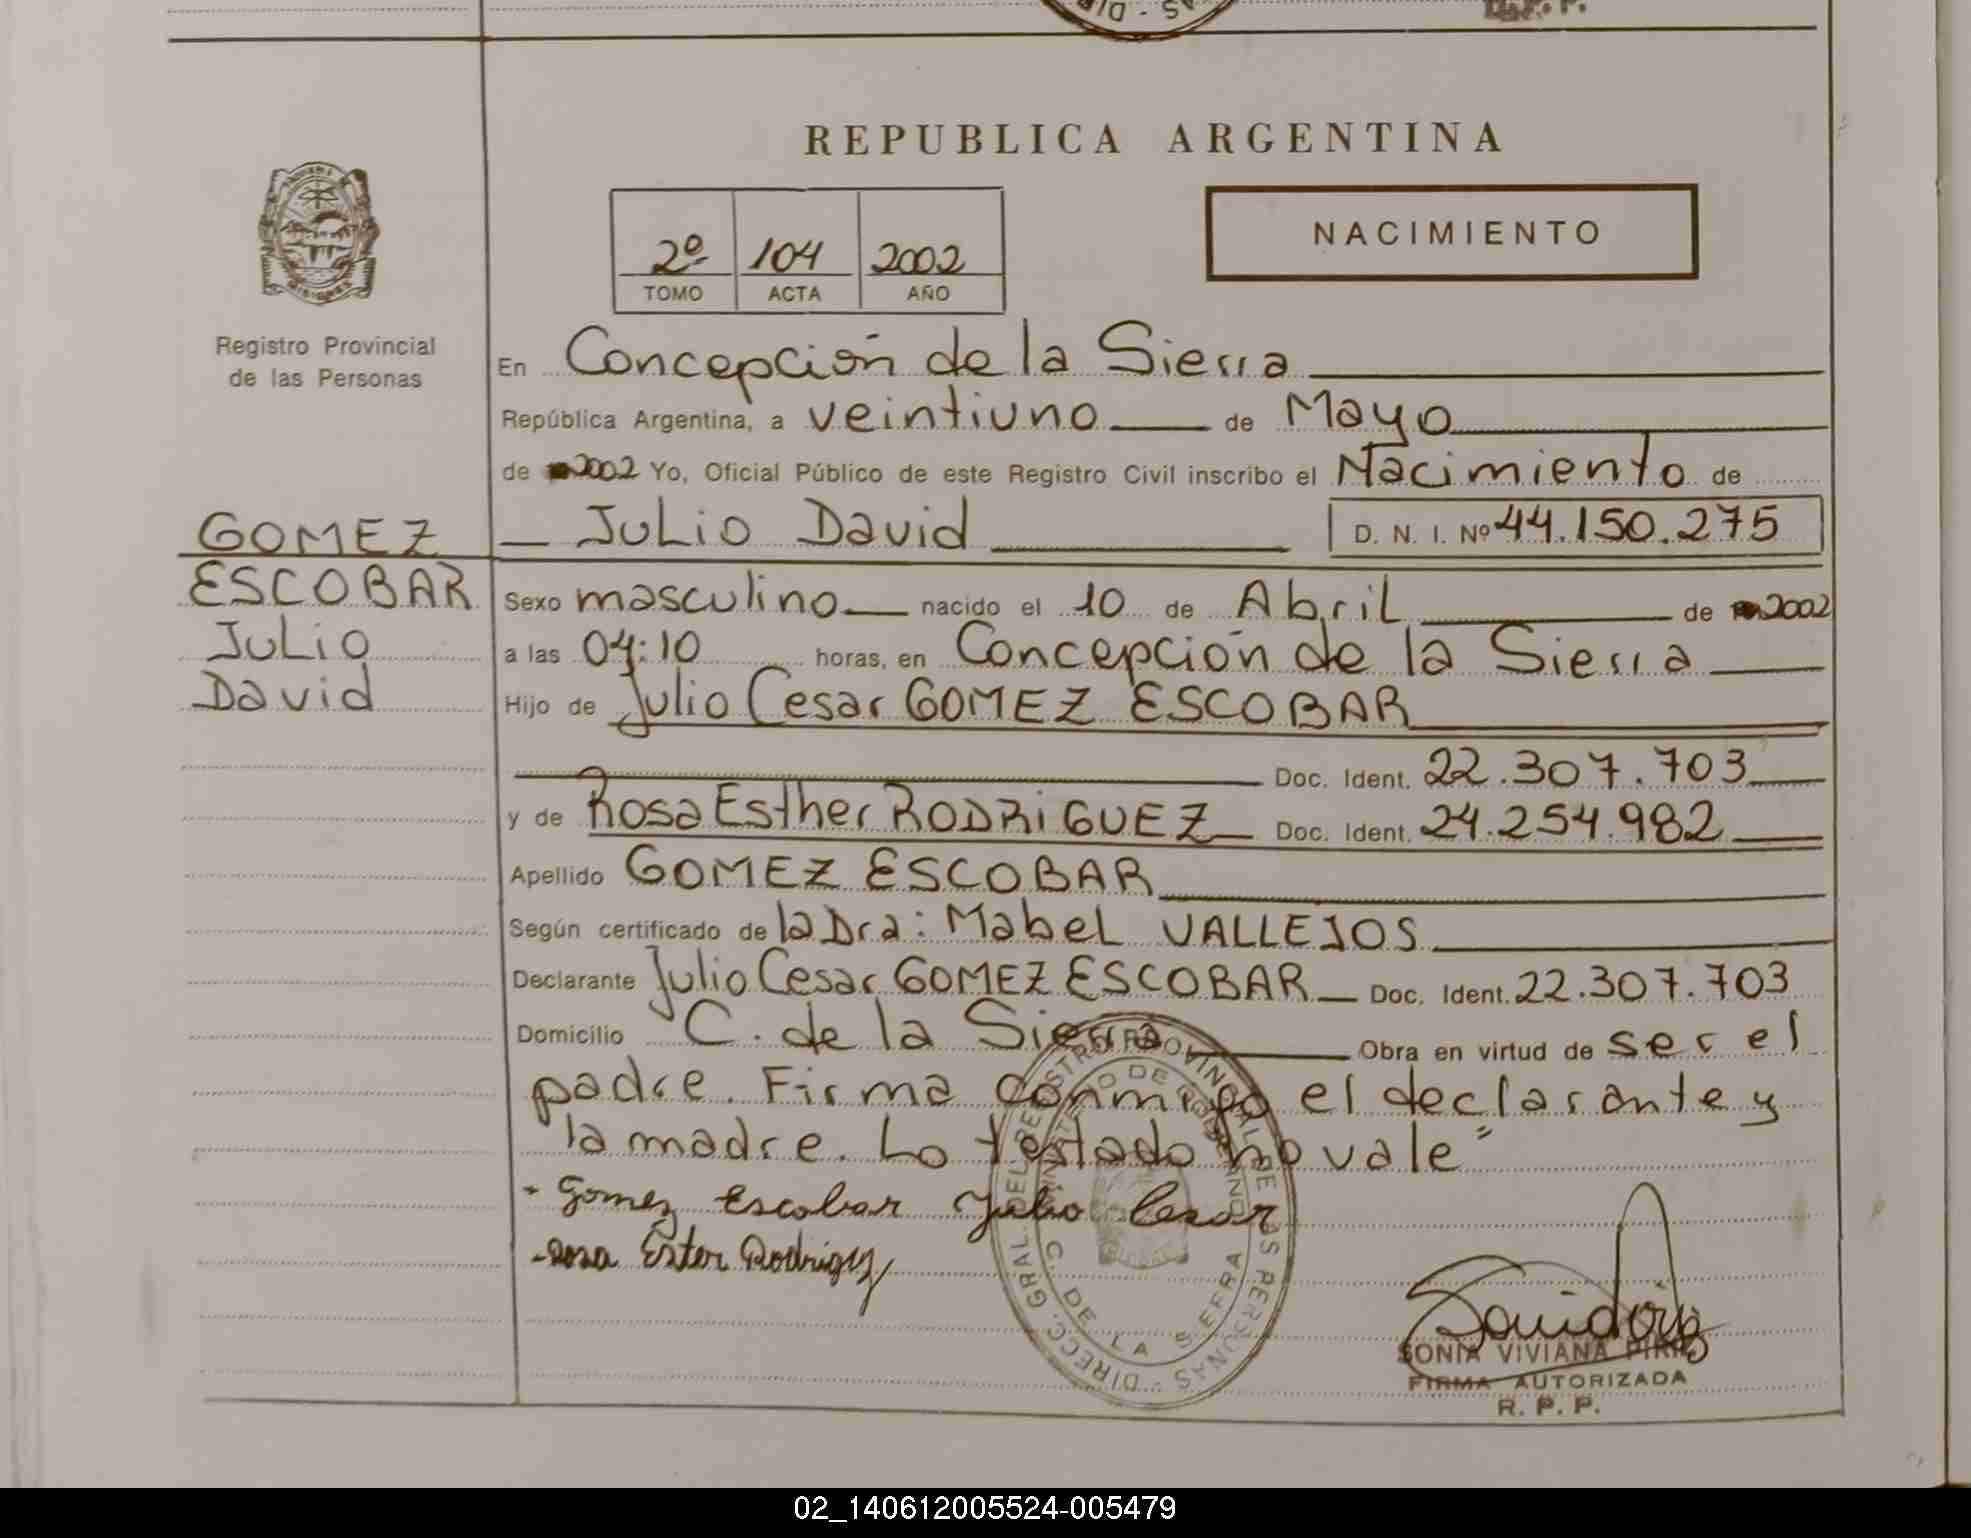 REPUBLICA ARGENTINA
2º 104 2002
TOMO ACTA AÑO
NACIMIENTO
MISIONES
Registro Provincial
de las Personas
En Concepción de la Sierra
República Argentina, a veintiuno de Mayo
de 2002 Yo, Oficial Público de este Registro Civil inscribo el Nacimiento de
GOMEZ
ESCOBAR
Julio
David
Julio David D. N. I. Nº 44.150.275
Sexo masculino nacido el 10 de Abril de 2002
a las 04:10 horas, en Concepción de la Sierra
Hijo de Julio Cesar GOMEZ ESCOBAR
Doc. Ident. 22.307.703
y de Rosa Esther RODRIGUEZ Doc. Ident. 24.254.982
Apellido GOMEZ ESCOBAR
Según certificado de la Dra: Mabel VALLEJOS
Declarante Julio Cesar GOMEZ ESCOBAR Doc. Ident. 22.307.703
Domicilio C. de la Sierra Obra en virtud de ser el
padre. Firma conmigo el declarante y
la madre. Lo testado no vale"
- Gomez Escobar Julio Cesar
- Rosa Ester Rodriguez
DIRECC. GRAL. DEL REGISTRO PROVINCIAL DE LAS PERSONAS
MINISTERIO DE GOBIERNO
C. DE LA SIERRA
SONIA VIVIANA
FIRMA AUTORIZADA
R. P. P.
02_140612005524-005479